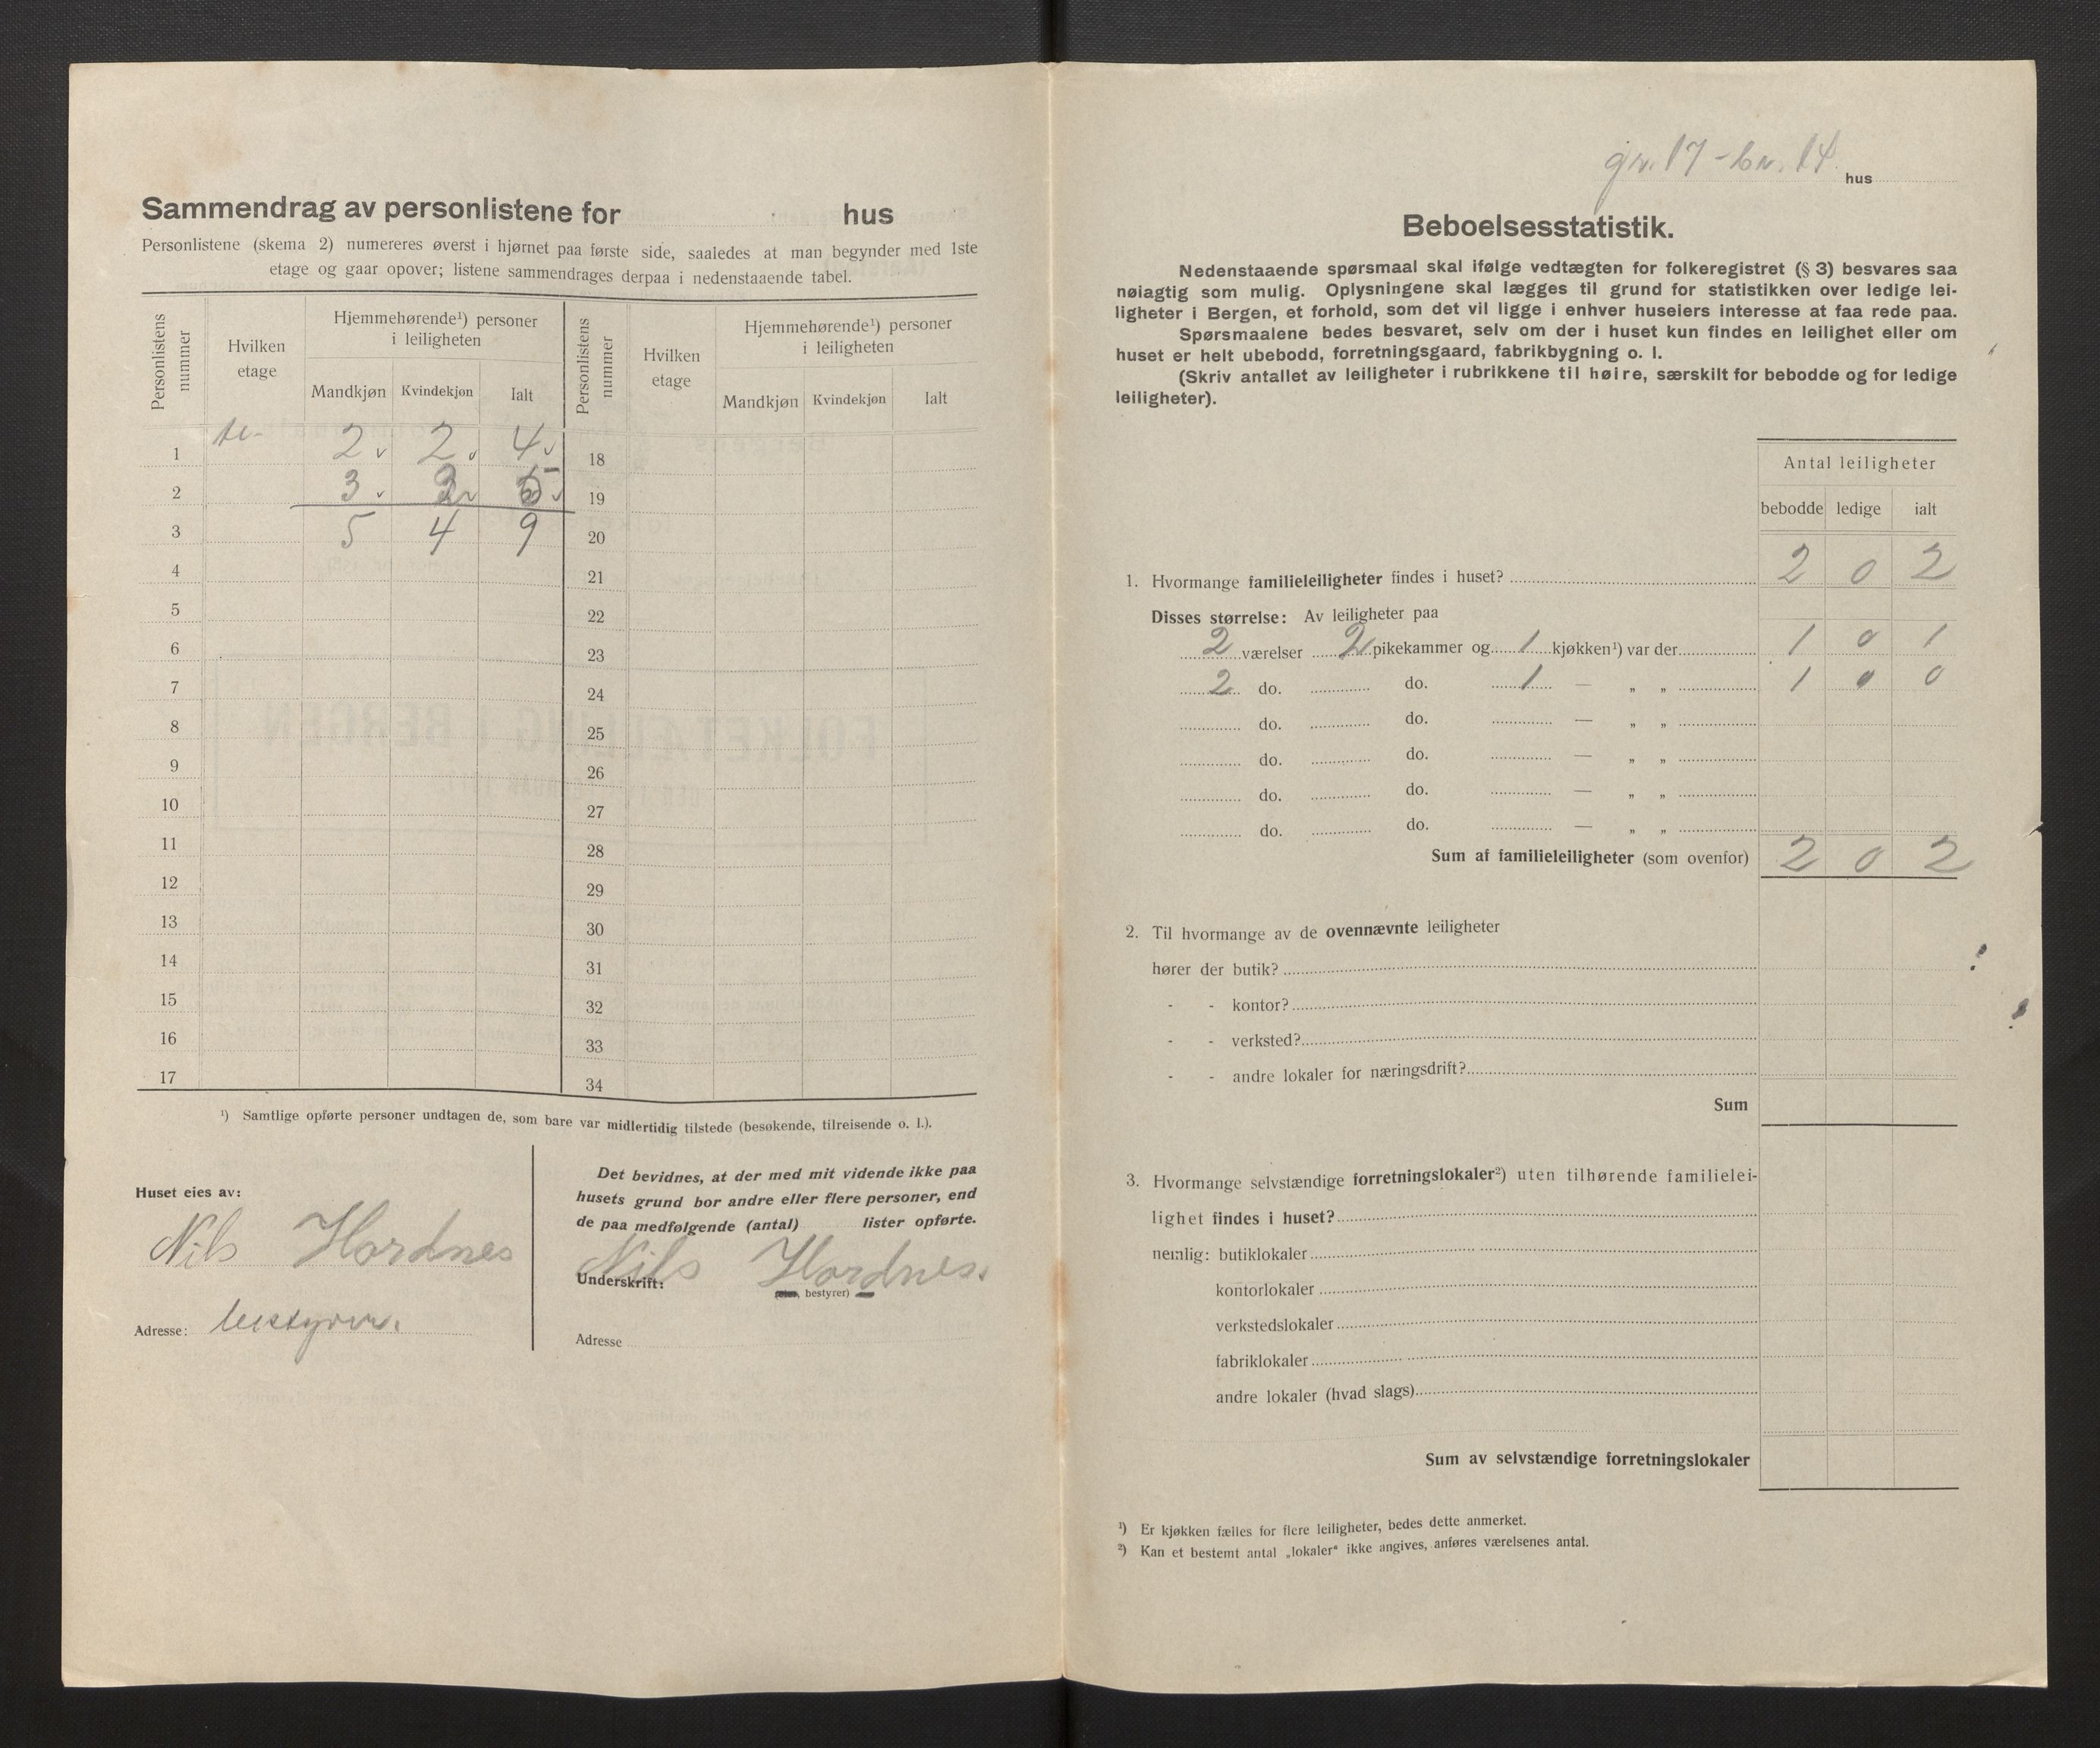 Sammendrag av personlistene for hus
Personlistene (skema 2) numereres øverst i hjørnet paa første side, saaledes at man begynder med 1ste
etage og gaar opover; listene sammendrages derpaa i nedenstaaende tabel.
Personlistens nummer
Hvilken etage
Hjemmehørende¹) personer i leiligheten
Mandkjøn Kvindekjøn Ialt
Personlistens nummer
Hvilken etage
Hjemmehørende¹) personer i leiligheten
Mandkjøn Kvindekjøn Ialt
1 2 2 4 18
2 3 2 5 19
3 5 4 9 20
4 21
5 22
6 23
7 24
8 25
9 26
10 27
11 28
12 29
13 30
14 31
15 32
16 33
17 34
¹) Samtlige opførte personer undtagen de, som bare var midlertidig tilstede (besøkende, tilreisende o. l.).
Huset eies av:
Nils Hordnes
Adresse: bestyrer.
Det bevidnes, at der med mit vidende ikke paa
husets grund bor andre eller flere personer, end
de paa medfølgende (antal) lister opførte.
Underskrift: Nils Hordnes.
bestyrer)
Adresse
gr. 17 - br. 14 hus
Beboelsesstatistik.
Nedenstaaende spørsmaal skal ifølge vedtægten for folkeregistret (§ 3) besvares saa
nøiagtig som mulig. Oplysningene skal lægges til grund for statistikken over ledige lei-
ligheter i Bergen, et forhold, som det vil ligge i enhver huseiers interesse at faa rede paa.
Spørsmaalene bedes besvaret, selv om der i huset kun findes en leilighet eller om
huset er helt ubebodd, forretningsgaard, fabrikbygning o. l.
(Skriv antallet av leiligheter i rubrikkene til høire, særskilt for bebodde og for ledige
leiligheter).
Antal leiligheter
bebodde ledige ialt
1. Hvormange familieleiligheter findes i huset? 2 0 2
Disses størrelse: Av leiligheter paa
2 værelser 2 pikekammer og 1 kjøkken¹) var der 1 0 1
2 do. do. 1 — „ „ 1 0 0
do. do. — „ „
do. do. — „ „
do. do. — „ „
do. do. — „ „
Sum af familieleiligheter (som ovenfor) 2 0 2
2. Til hvormange av de ovennævnte leiligheter
hører der butik?
- - kontor?
- - verksted?
- - andre lokaler for næringsdrift?
Sum
3. Hvormange selvstændige forretningslokaler²) uten tilhørende familielei-
lighet findes i huset?
nemlig: butiklokaler
kontorlokaler
verkstedslokaler
fabriklokaler
andre lokaler (hvad slags)
Sum av selvstændige forretningslokaler
¹) Er kjøkken fælles for flere leiligheter, bedes dette anmerket.
²) Kan et bestemt antal „lokaler“ ikke angives, anføres værelsenes antal.